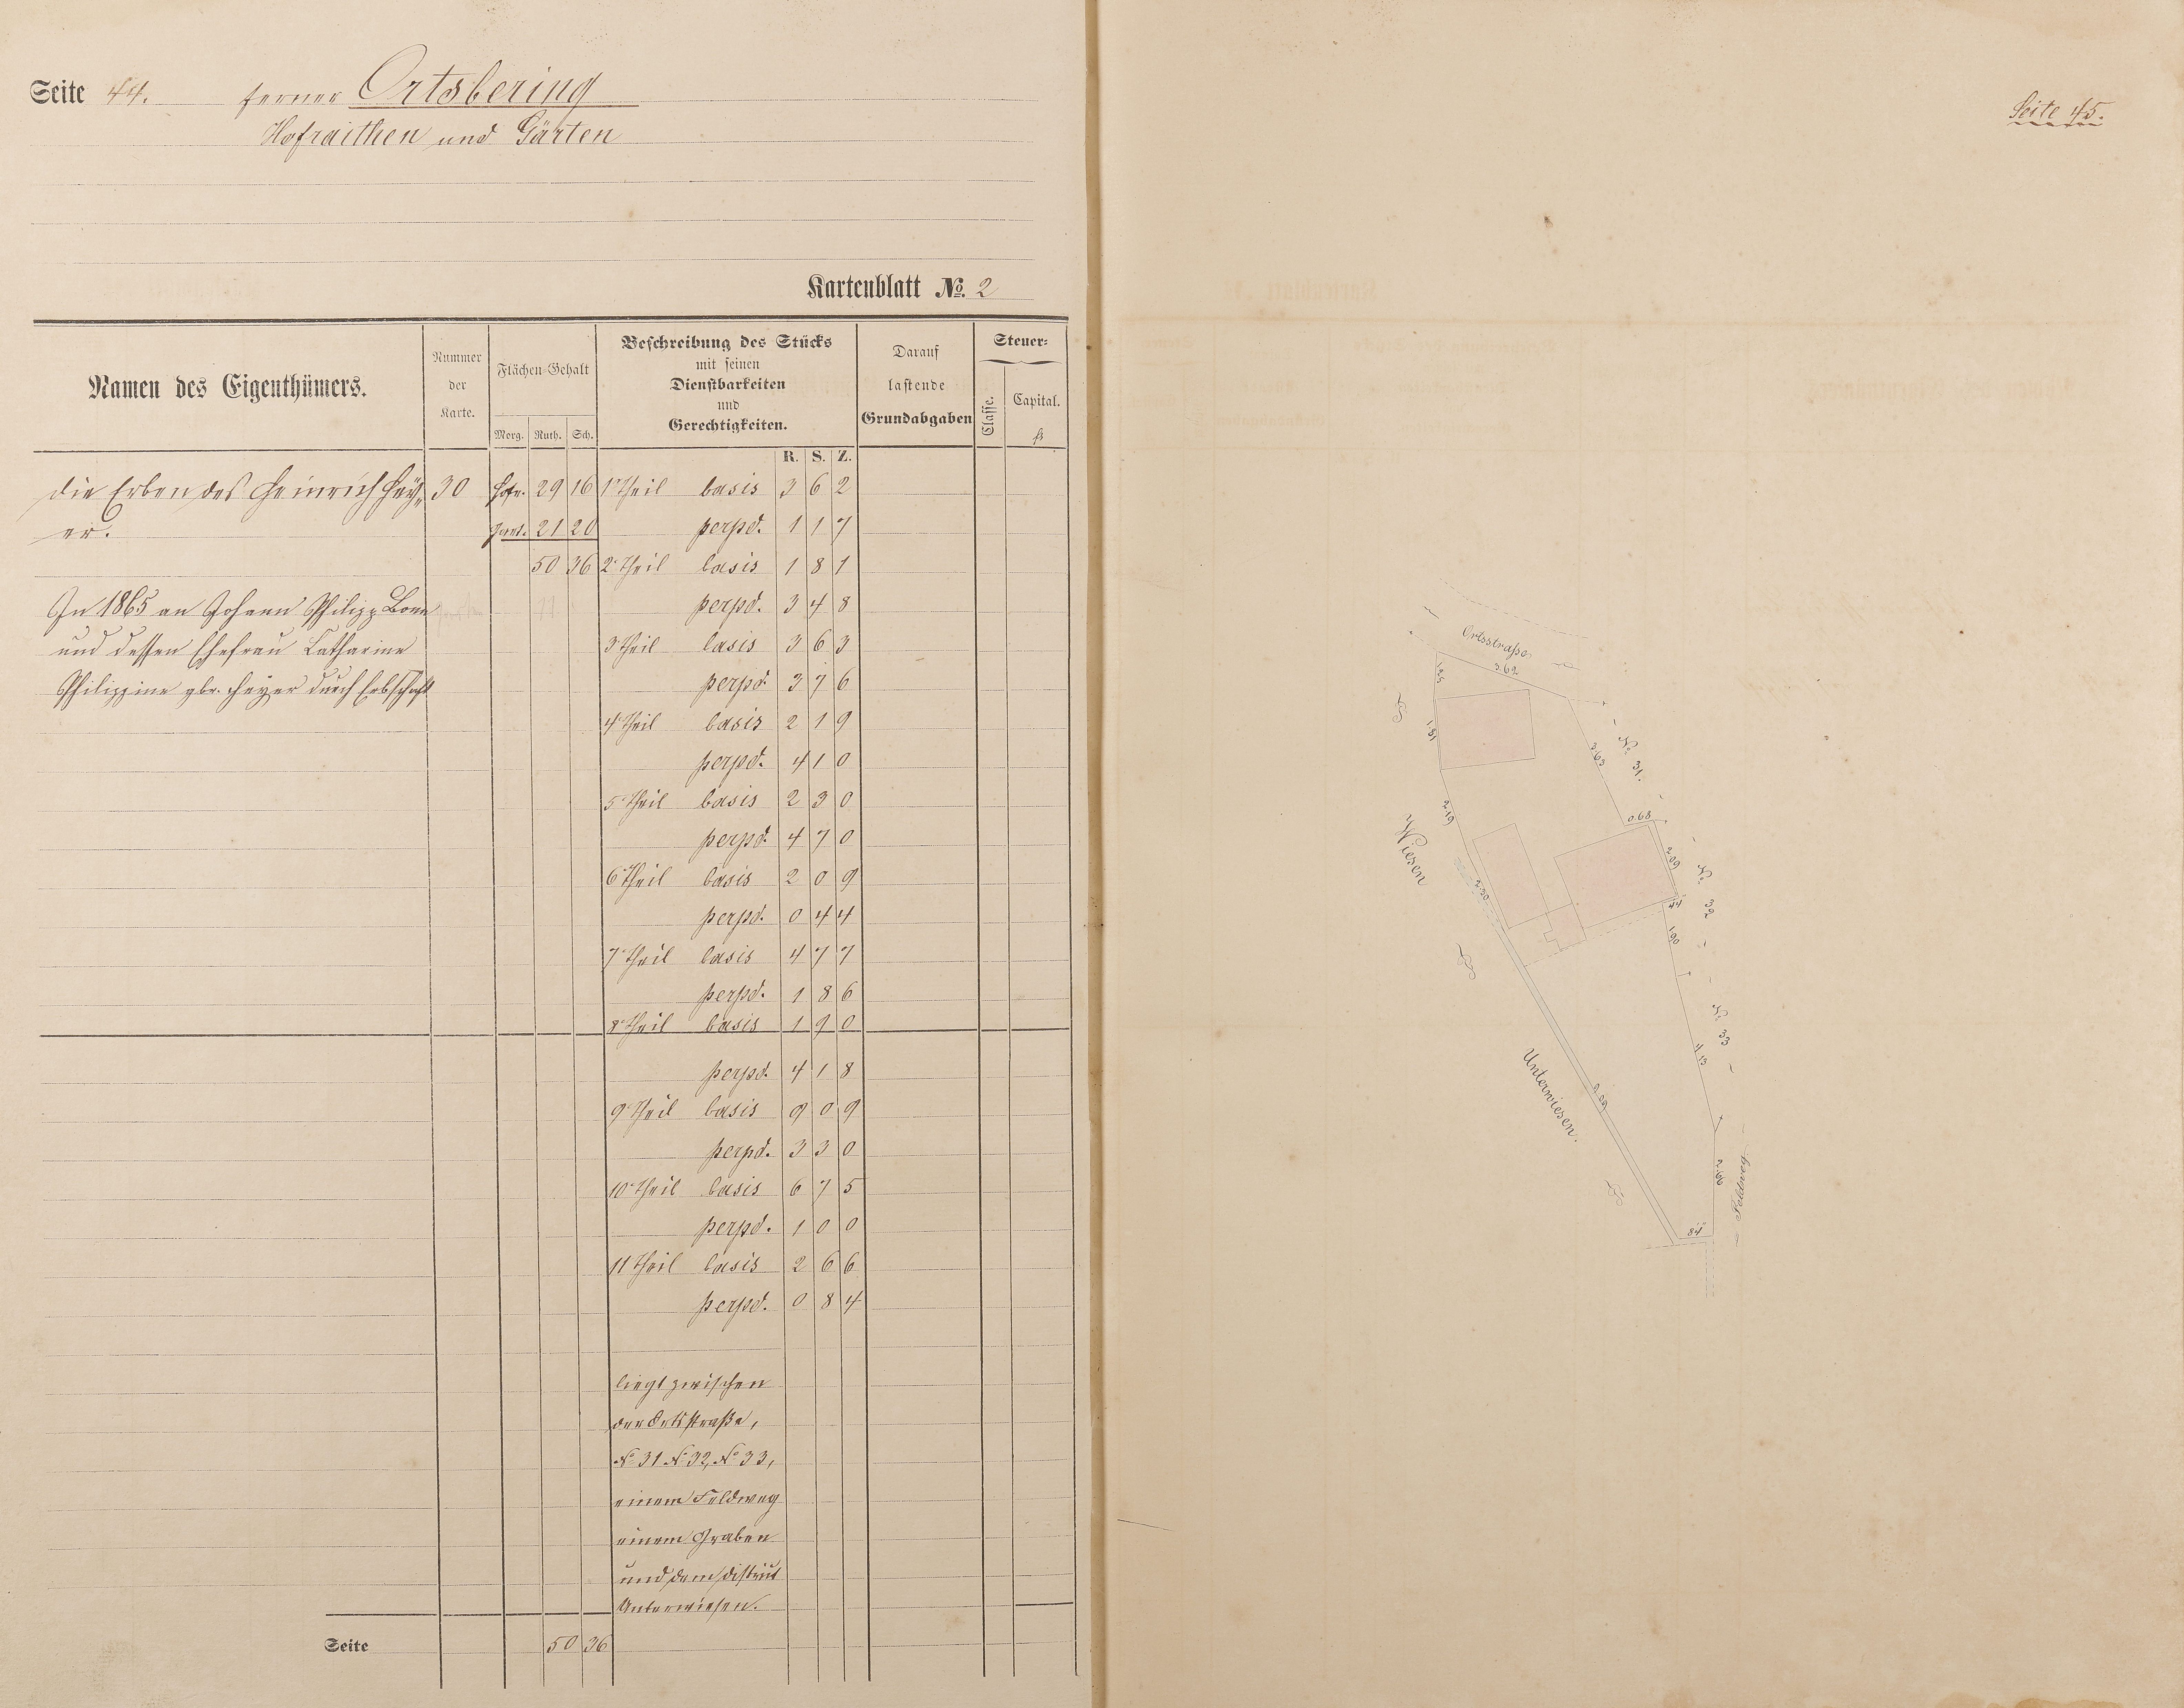 Seite 44. ferner Ortsbering
Hofraithen und Gärten
Kartenblatt No. 2
Namen des Eigenthümers.
Nummer der Karte.
Flächen-Gehalt
Morg. Ruth. Sch.
Beschreibung des Stücks
mit seinen
Dienstbarkeiten
und
Gerechtigkeiten.
Darauf
lastende
Grundabgaben
Steuer-
Classe.
Capital.
fl
R. S. Z.
die Erben des Heinrich Hey- 30 Hofr. 29 16 1r Theil basis 3 6 2
er. Gart. 21 20 perpd. 1 1 7
50 36 2r Theil basis 1 8 1
In 1865 an Johann Philipp Bonn perpd. 3 4 8
und dessen Ehefrau Catharine 3r Theil basis 3 6 3
Philippine gbr. Heyer durch Erbschaft perpd. 3 7 6
4r Theil basis 2 1 9
perpd. 4 1 0
5r Theil basis 2 3 0
perpd. 4 7 0
6r Theil basis 2 0 9
perpd. 0 4 4
7r Theil basis 4 7 7
perpd. 1 8 6
8r Theil basis 1 9 0
perpd. 4 1 8
9r Theil basis 9 0 9
perpd. 3 3 0
10r Theil basis 6 7 5
perpd. 1 0 0
11 Theil basis 2 6 6
perpd. 0 8 4
liegt zwischen
der Ortsstraße,
No 31 No 32, No 33,
einem Feldweg
einem Graben
und dem District
Unterwiesen.
Seite 50 36
Seite 45.
Ortsstraße
3.62
1.81
3.63
No. 31.
2.19
0.68
Wiesen
2.09
2.30
No. 32
44
1.90
No. 33
4.13
Unterwiesen.
9.09
2.66
Feldweg
84